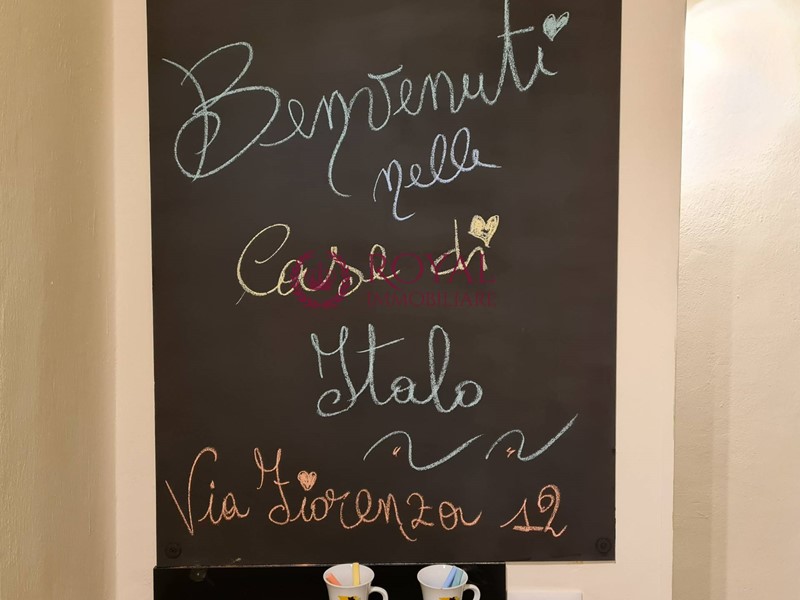 Benvenuti
nelle
Case di
ROYAL
IMMOBILIARE
Italo
Via Fiorenza 12